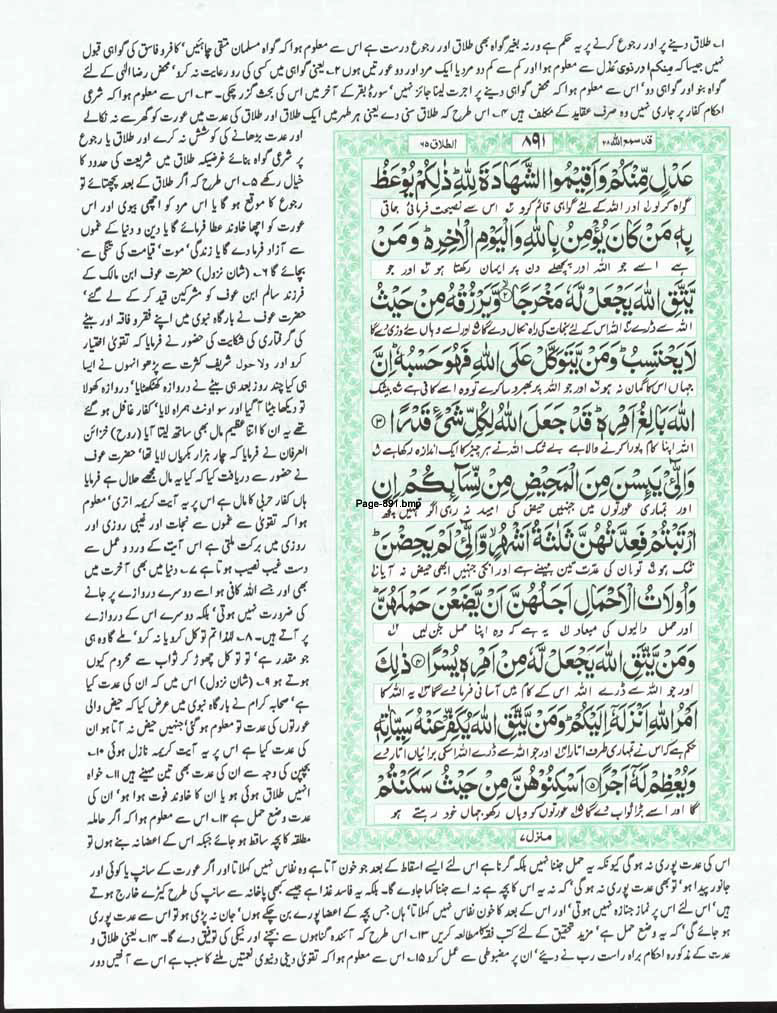 ۱۔ طلاق دینے پر اور رجوع کرنے پر یہ حکم ہے ورنہ بغیر گواہ بھی طلاق اور رجوع درست ہے اس سے معلوم ہوا کہ گواہ مسلمان متقی چاہئیں' کافر و فاسق کی گواہی قبول
نہیں جیسا کہ منکم اور ذوی عدل سے معلوم ہوا اور کم سے کم دو مرد یا ایک مرد اور دو عورتیں ہوں ۲۔ یعنی گواہی میں کسی کی رو رعایت نہ کرو' محض رضا الٰہی کے لئے
گواہ بنو اور گواہی دو' اس سے معلوم ہوا کہ محض گواہی دینے پر اجرت لینا جائز نہیں' سورۂ بقر کے آخر میں اس کی بحث گزر چکی۔ ۳۔ اس سے معلوم ہوا کہ شرعی
احکام کفار پر جاری نہیں وہ صرف عقاید کے مکلف ہیں ۴۔ اس طرح کہ طلاق سنی دے یعنی ہر طہر میں ایک طلاق اور طلاق کی عدت میں عورت کو گھر سے نہ نکالے
قد سمع اللہ ۲۸
۸۹۱
الطلاق ۶۵
عَدْلٍ مِّنْكُمْ وَاَقِيْمُوا الشَّهَادَةَ لِلّٰهِ ذٰلِكُمْ يُوْعَظُ
گواہ کر لو اور اللہ کے لئے گواہی قائم کرو اس سے نصیحت فرمائی جاتی
بِهٖ مَنْ كَانَ يُؤْمِنُ بِاللّٰهِ وَالْيَوْمِ الْاٰخِرِ وَمَنْ
ہے اسے جو اللہ اور پچھلے دن پر ایمان رکھتا ہو اور جو
يَّتَّقِ اللّٰهَ يَجْعَلْ لَّهٗ مَخْرَجًا ۲ وَّيَرْزُقْهُ مِنْ حَيْثُ
اللہ سے ڈرے اللہ اس کے لئے نجات کی راہ نکال دے گا اور اسے وہاں سے روزی دے گا
لَا يَحْتَسِبُ وَمَنْ يَّتَوَكَّلْ عَلَى اللّٰهِ فَهُوَ حَسْبُهٗ اِنَّ
جہاں اس کا گمان نہ ہو اور جو اللہ پر بھروسا کرے تو وہ اسے کافی ہے بیشک
اللّٰهَ بَالِغُ اَمْرِهٖ قَدْ جَعَلَ اللّٰهُ لِكُلِّ شَيْءٍ قَدْرًا ۳
اللہ اپنا کام پورا کرنے والا ہے بے شک اللہ نے ہر چیز کا ایک اندازہ رکھا ہے
وَالّٰٓـِٔيْ يَئِسْنَ مِنَ الْمَحِيْضِ مِنْ نِّسَآئِكُمْ اِنِ
اور تمہاری عورتوں میں جنہیں حیض کی امید نہ رہی اگر تمہیں کچھ
Page-891.bmp
ارْتَبْتُمْ فَعِدَّتُهُنَّ ثَلٰثَةُ اَشْهُرٍ وَّالّٰٓـِٔيْ لَمْ يَحِضْنَ
شک ہو تو ان کی عدت تین مہینے ہے اور انکی جنہیں ابھی حیض نہ آیا
وَاُولَاتُ الْاَحْمَالِ اَجَلُهُنَّ اَنْ يَّضَعْنَ حَمْلَهُنَّ
اور حمل والیوں کی میعاد یہ ہے کہ وہ اپنا حمل جن لیں
وَمَنْ يَّتَّقِ اللّٰهَ يَجْعَلْ لَّهٗ مِنْ اَمْرِهٖ يُسْرًا ۴ ذٰلِكَ
اور جو اللہ سے ڈرے اللہ اس کے کام میں آسانی فرما دے گا یہ اللہ کا
اَمْرُ اللّٰهِ اَنْزَلَهٗ اِلَيْكُمْ وَمَنْ يَّتَّقِ اللّٰهَ يُكَفِّرْ عَنْهُ سَيِّاٰتِهٖ
حکم ہے کہ اس نے تمہاری طرف اتارا اور جو اللہ سے ڈرے اللہ اسکی برائیاں اتار دے
وَيُعْظِمْ لَهٗٓ اَجْرًا ۵ اَسْكِنُوْهُنَّ مِنْ حَيْثُ سَكَنْتُمْ
گا اور اسے بڑا ثواب دے گا عورتوں کو وہاں رکھو جہاں خود رہتے ہو
منزل ۷
اور عدت بڑھانے کی کوشش نہ کرے اور طلاق یا رجوع
پر شرعی گواہ بنائے غرضیکہ طلاق میں شریعت کی حدود کا
خیال رکھے ۵۔ اس طرح کہ اگر طلاق کے بعد پچھتائے تو
رجوع کا موقع ہو گا یا اس مرد کو اچھی بیوی اور اس
عورت کو اچھا خاوند عطا فرمائے گا یا دین و دنیا کے غموں
سے آزاد فرما دے گا یا زندگی' موت' قیامت کی تنگی سے
بچائے گا ۶۔ (شان نزول) حضرت عوف ابن مالک کے
فرزند سالم ابن عوف کو مشرکین قید کر کے لے گئے'
حضرت عوف نے بارگاہ نبوی میں اپنے فقر و فاقہ اور بیٹے
کی گرفتاری کی شکایت کی حضور نے فرمایا کہ تقویٰ اختیار
کرو اور ولا حول شریف کثرت سے پڑھو انہوں نے ایسا
ہی کیا چند روز بعد ہی بیٹے نے دروازہ کھٹکھٹایا' دروازہ کھولا
تو دیکھا بیٹا آ گیا اور سو اونٹ ہمراہ لایا' کفار غافل ہو گئے
تھے یہ ان کا اتنا عظیم مال بھی ساتھ لیتا آیا (روح) خزائن
العرفان نے فرمایا کہ چار ہزار بکریاں لایا تھا' حضرت عوف
نے حضور سے دریافت کیا کہ کیا یہ مال مجھے حلال ہے فرمایا
ہاں کفار حربی کا مال ہے اس پر یہ آیت کریمہ اتری' معلوم
ہوا کہ تقویٰ سے غموں سے نجات اور غیبی روزی اور
روزی میں برکت ملتی ہے اس آیت کے ورد و عمل سے
دست غیب نصیب ہوتا ہے ۷۔ دنیا میں بھی آخرت میں
بھی اور جسے اللہ کافی ہو اسے دوسرے دروازے پر جانے
کی ضرورت نہیں ہوتی' بلکہ دوسرے اس کے دروازے
پر آتے ہیں۔ ۸۔ لہٰذا تم توکل کرو یا نہ کرو' ملے گا وہ ہی
جو مقدر ہے' تو توکل چھوڑ کر ثواب سے محروم کیوں
ہوتے ہو ۹۔ (شان نزول) اس میں کہ ان کی عدت کیا
ہے' صحابہ کرام نے بارگاہ نبوی میں عرض کیا کہ حیض والی
عورتوں کی عدت تو معلوم ہو گئی' جنہیں حیض نہ آتا ہو ان
کی عدت کیا ہے اس پر یہ آیت کریمہ نازل ہوئی ۱۰۔
بچپن کی وجہ سے ان کی عدت بھی تین مہینے ہیں ۱۱۔ خواہ
انہیں طلاق ہوئی ہو یا ان کا خاوند فوت ہوا ہو' ان کی
عدت وضع حمل ہے ۱۲۔ اس سے معلوم ہوا کہ اگر حاملہ
مطلقہ کا بچہ ساقط ہو جائے جبکہ اس کے اعضا نہ بنے ہوں تو
اس کی عدت پوری نہ ہو گی کیونکہ یہ حمل جننا نہیں بلکہ گرنا ہے اس لئے ایسے اسقاط کے بعد جو خون آتا ہے وہ نفاس نہیں کہلاتا اور اگر عورت کے سانپ یا کوئی اور
جانور پیدا ہو' تو بھی عدت پوری نہ ہو گی' کہ نہ یہ اس کا بچہ ہے نہ اسے جننا کہا جاوے گا۔ بلکہ یہ فاسد غذا ہے جیسے بھی پاخانہ سے سانپ کی طرح کیڑے خارج ہوتے
ہیں' اس لئے اس پر نماز جنازہ نہیں ہوتی' اور اس کے بعد کا خون نفاس نہیں کہلاتا' ہاں جس بچہ کے اعضا پورے بن چکے ہوں' جان نہ پڑی ہو تو اس سے عدت پوری
ہو جائے گی' کہ یہ وضع حمل ہے' مزید تحقیق کے لئے کتب فقہ کا مطالعہ کریں ۱۳۔ اس طرح کہ آئندہ گناہوں سے بچنے اور نیکی کی توفیق دے گا۔ ۱۴۔ یعنی طلاق و
عدت کے مذکورہ احکام براہ راست رب نے دیئے' ان پر مضبوطی سے عمل کرو ۱۵۔ اس سے معلوم ہوا کہ تقویٰ دینی دنیوی نعمتیں ملنے کا سبب ہے اس سے آفتیں دور